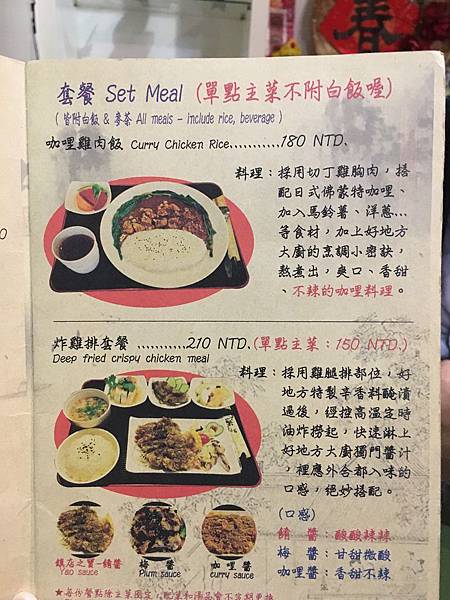 春
套餐 Set Meal (單點主菜不附白飯喔)
( 皆附白飯 & 麥茶 All meals - include rice, beverage )
咖哩雞肉飯 Curry Chicken Rice...........180 NTD.
料理：採用切丁雞胸肉，搭
配日式佛蒙特咖哩、
加入馬鈴薯、洋蔥...
等食材，加上好地方
大廚的烹調小密訣，
熬煮出，爽口、香甜
、不辣的咖哩料理。
炸雞排套餐 ...........210 NTD.(單點主菜：150 NTD.)
Deep fried crispy chicken meal
料理：採用雞腿排部位，好
地方特製辛香料醃漬
過後，經控高溫定時
油炸撈起，快速淋上
好地方大廚獨門醬汁
，裡應外合都入味的
口感，絕妙搭配。
(口感)
鎮店之寶-餚醬
Yao sauce
梅 醬
Plum sauce
咖哩醬
curry sauce
餚 醬：酸酸辣辣
梅 醬：甘甜微酸
咖哩醬：香甜不辣
★每份餐點除主菜固定，配菜和湯品會不定期更換